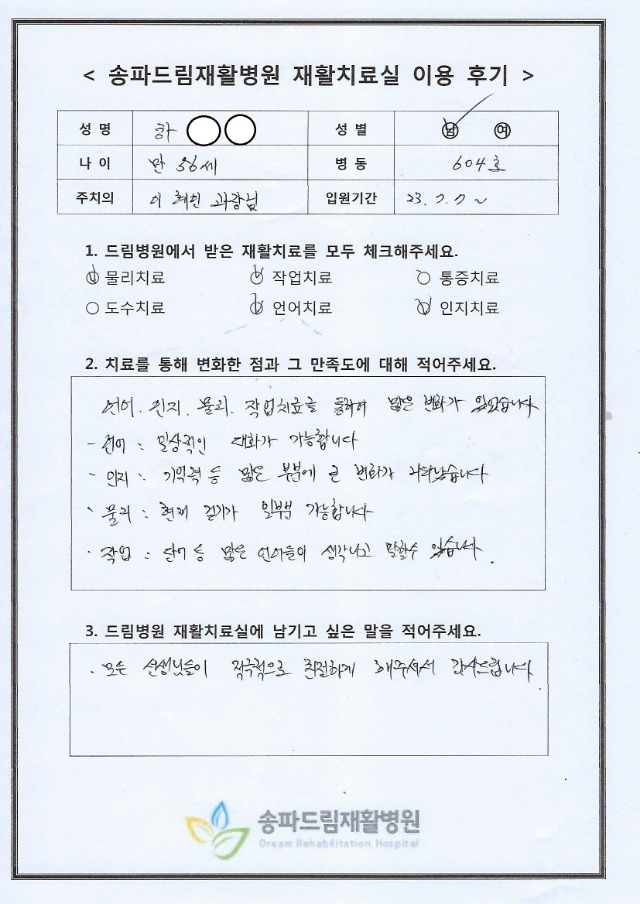 < 송파드림재활병원 재활치료실 이용 후기 >
성 명 하 성 별 남 여
나 이 만 56세 병 동 604호
주치의 이 과장님 입원기간 23. 7. 7 ~
1. 드림병원에서 받은 재활치료를 모두 체크해주세요.
물리치료 작업치료 통증치료
도수치료 언어치료 인지치료
2. 치료를 통해 변화한 점과 그 만족도에 대해 적어주세요.
언어. 인지. 물리. 작업치료를 통하여 많은 변화가 있었습니다
- 언어 : 일상적인 대화가 가능합니다
- 인지 : 기억력 등 많은 부분에 큰 변화가 나타났습니다
- 물리 : 현재 걷기가 일부분 가능합니다
- 작업 : 단어 등 많은 언어들이 생각나고 말할수 있습니다.
3. 드림병원 재활치료실에 남기고 싶은 말을 적어주세요.
. 모든 선생님들이 적극적으로 친절하게 해주셔서 감사드립니다
송파드림재활병원
Dream Rehabilitation Hospital